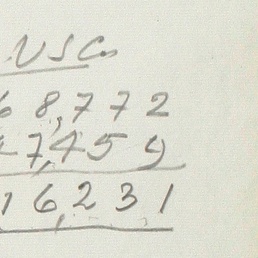 NSC
68,772
47,459
16,231